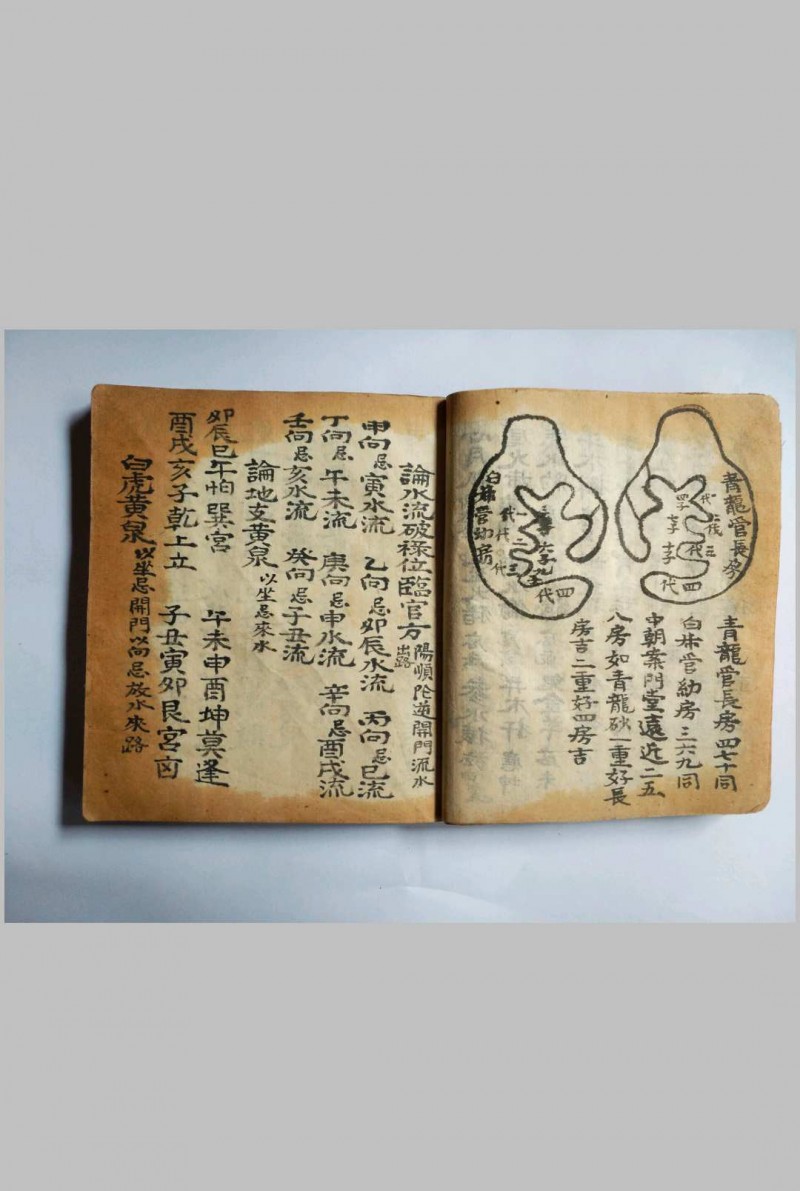 青龍管長房
一代
二代
三代
四代
白㡳管幼房
一代
二代
三代
四代
青龍管長房四七十同
白㡳管幼房三六九同
中朝案門堂遠近二五
八房如青龍砂一重好長
房吉二重好四房吉
論水流破祿位臨官方 陽順陰逆開門流水出路
甲向忌寅水流 乙向忌卯辰水流 丙向忌巳流
丁向忌午未流 庚向忌申水流 辛向忌酉戌流
壬向忌亥水流 癸向忌子丑流
論地支黃泉 以坐忌來水
卯辰巳午怕巽宮 午未申酉坤莫逢
酉戌亥子乾上立 子丑寅卯艮宮㐫
白虎黃泉 以坐忌開門以向忌放水來路